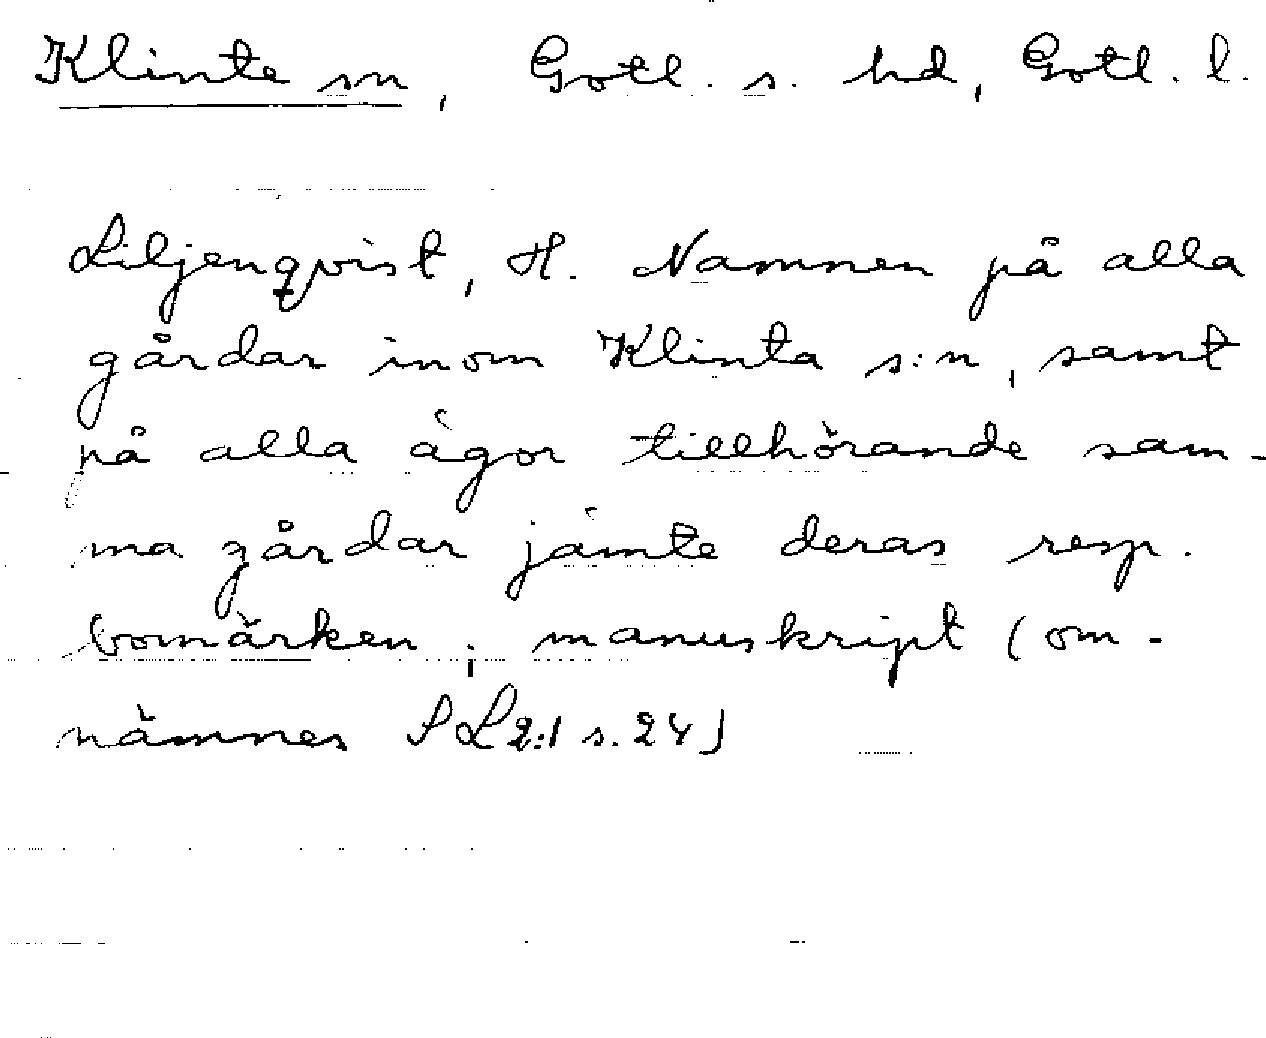 Klinte sn, Gotl. s. hd, Gotl. l.
Liljenqvist, H. Namnen på alla
gårdar inom Klinta s:n, samt
på alla ägor tillhörande sam-
ma gårdar jämte deras resp.
bomärken; manuskript (om-
nämnes SL 2:1 s. 24)